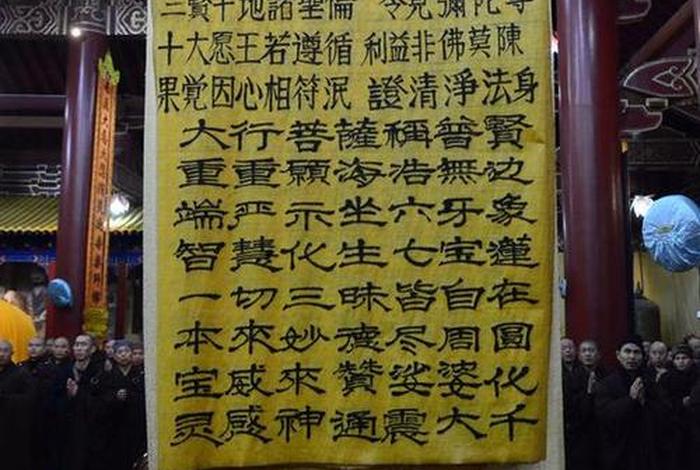 三賢十地諸聖倫 令見彌陀等
十大愿王若遵循 利益非佛莫陳
果覚因心相符泯 證清淨法身
大行菩薩稱普賢
重重願海浩無边
端严示坐六牙象
智慧化生七宝蓮
一切三昧皆自在
本來妙德尽周圓
宝威來贊娑婆化
灵感神通震大千